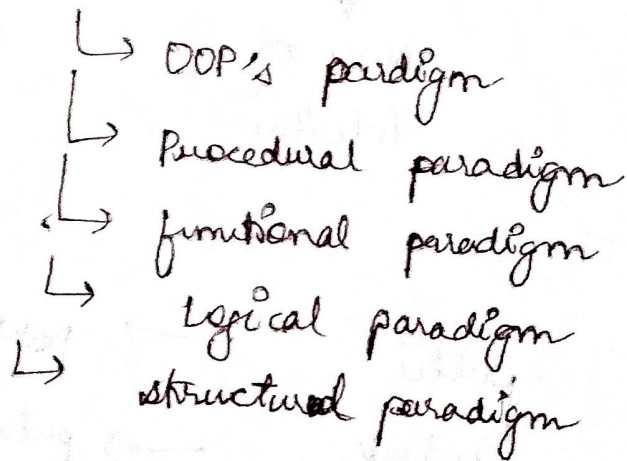 ↳ OOP's pardigm
↳ Procedural paradigm
↳ functional paradigm
↳ Logical paradigm
↳ structured paradigm